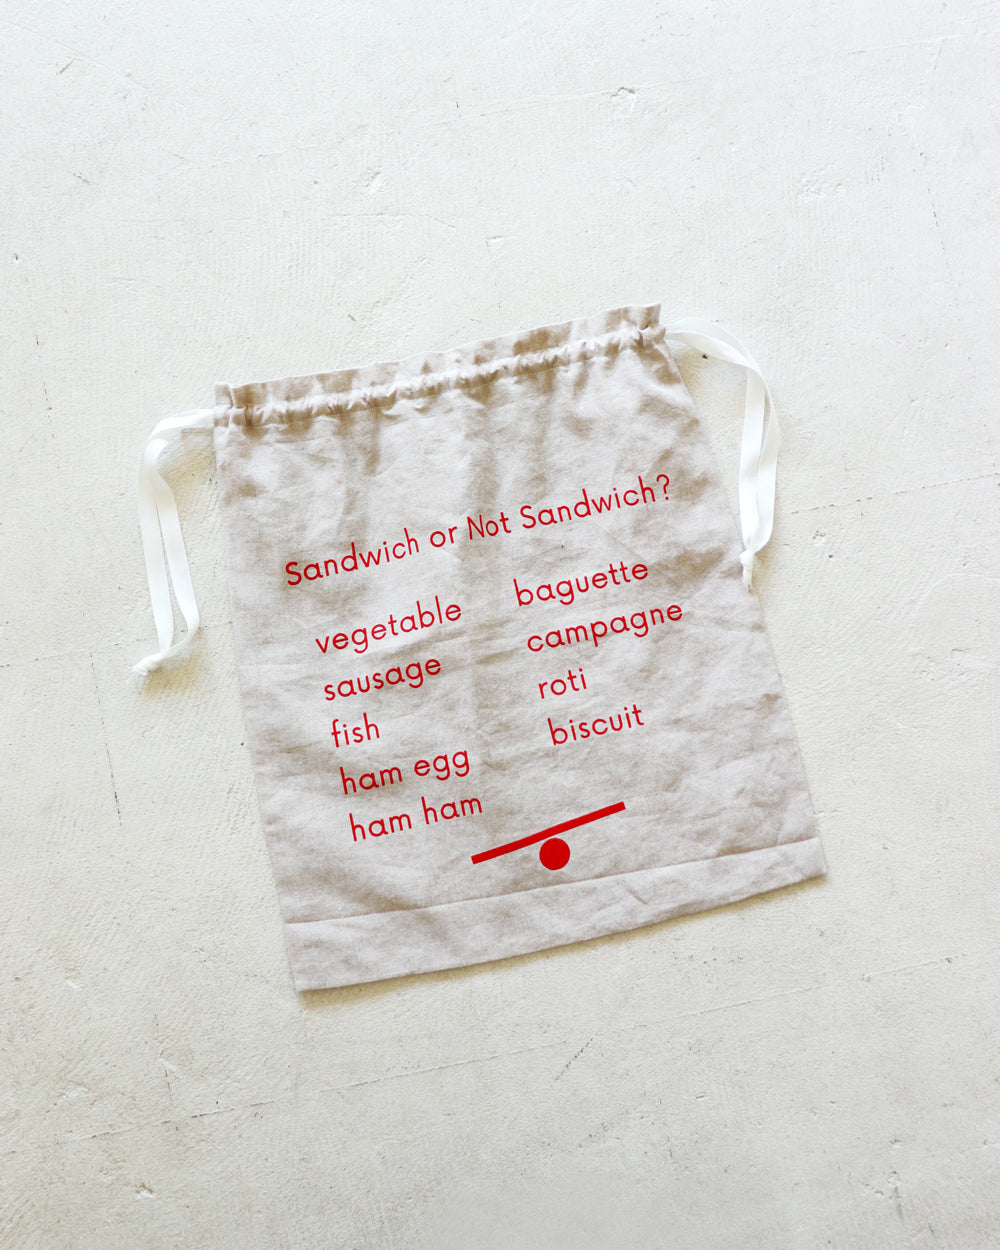 Sandwich or Not Sandwich?
vegetable
sausage
fish
ham egg
ham ham
baguette
campagne
roti
biscuit